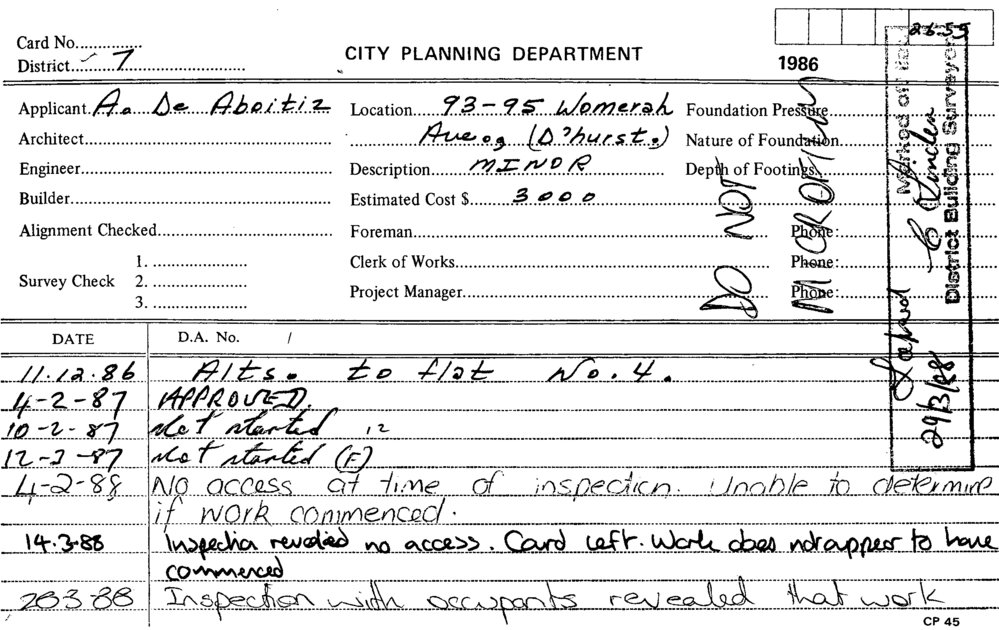 26.55
Card No.
District 7
CITY PLANNING DEPARTMENT
1986
Applicant A. De Aboitiz
Location 93-95 Womerah
Foundation Pressure
Architect
Ave., (D'hurst.)
Nature of Foundation
Engineer
Description MINOR
Depth of Footings
Builder
Estimated Cost $ 3000
Alignment Checked
Foreman
Phone:
Survey Check
1.
2.
3.
Clerk of Works
Phone:
Project Manager
Phone:
DO NOT
MICROFILM
Marked off
District Building Surveyor
29/3/88
DATE
D.A. No. /
11.12.86 Alts. to flat No. 4.
4-2-87 APPROVED.
10-2-87 Not started 12
12-3-87 Not started (F)
4-2-88 No access at time of inspection. Unable to determine
if work commenced.
14.3.88 Inspection revealed no access. Card left. Work does not appear to have
commenced
28-3-88 Inspection with occupants revealed that work
CP 45